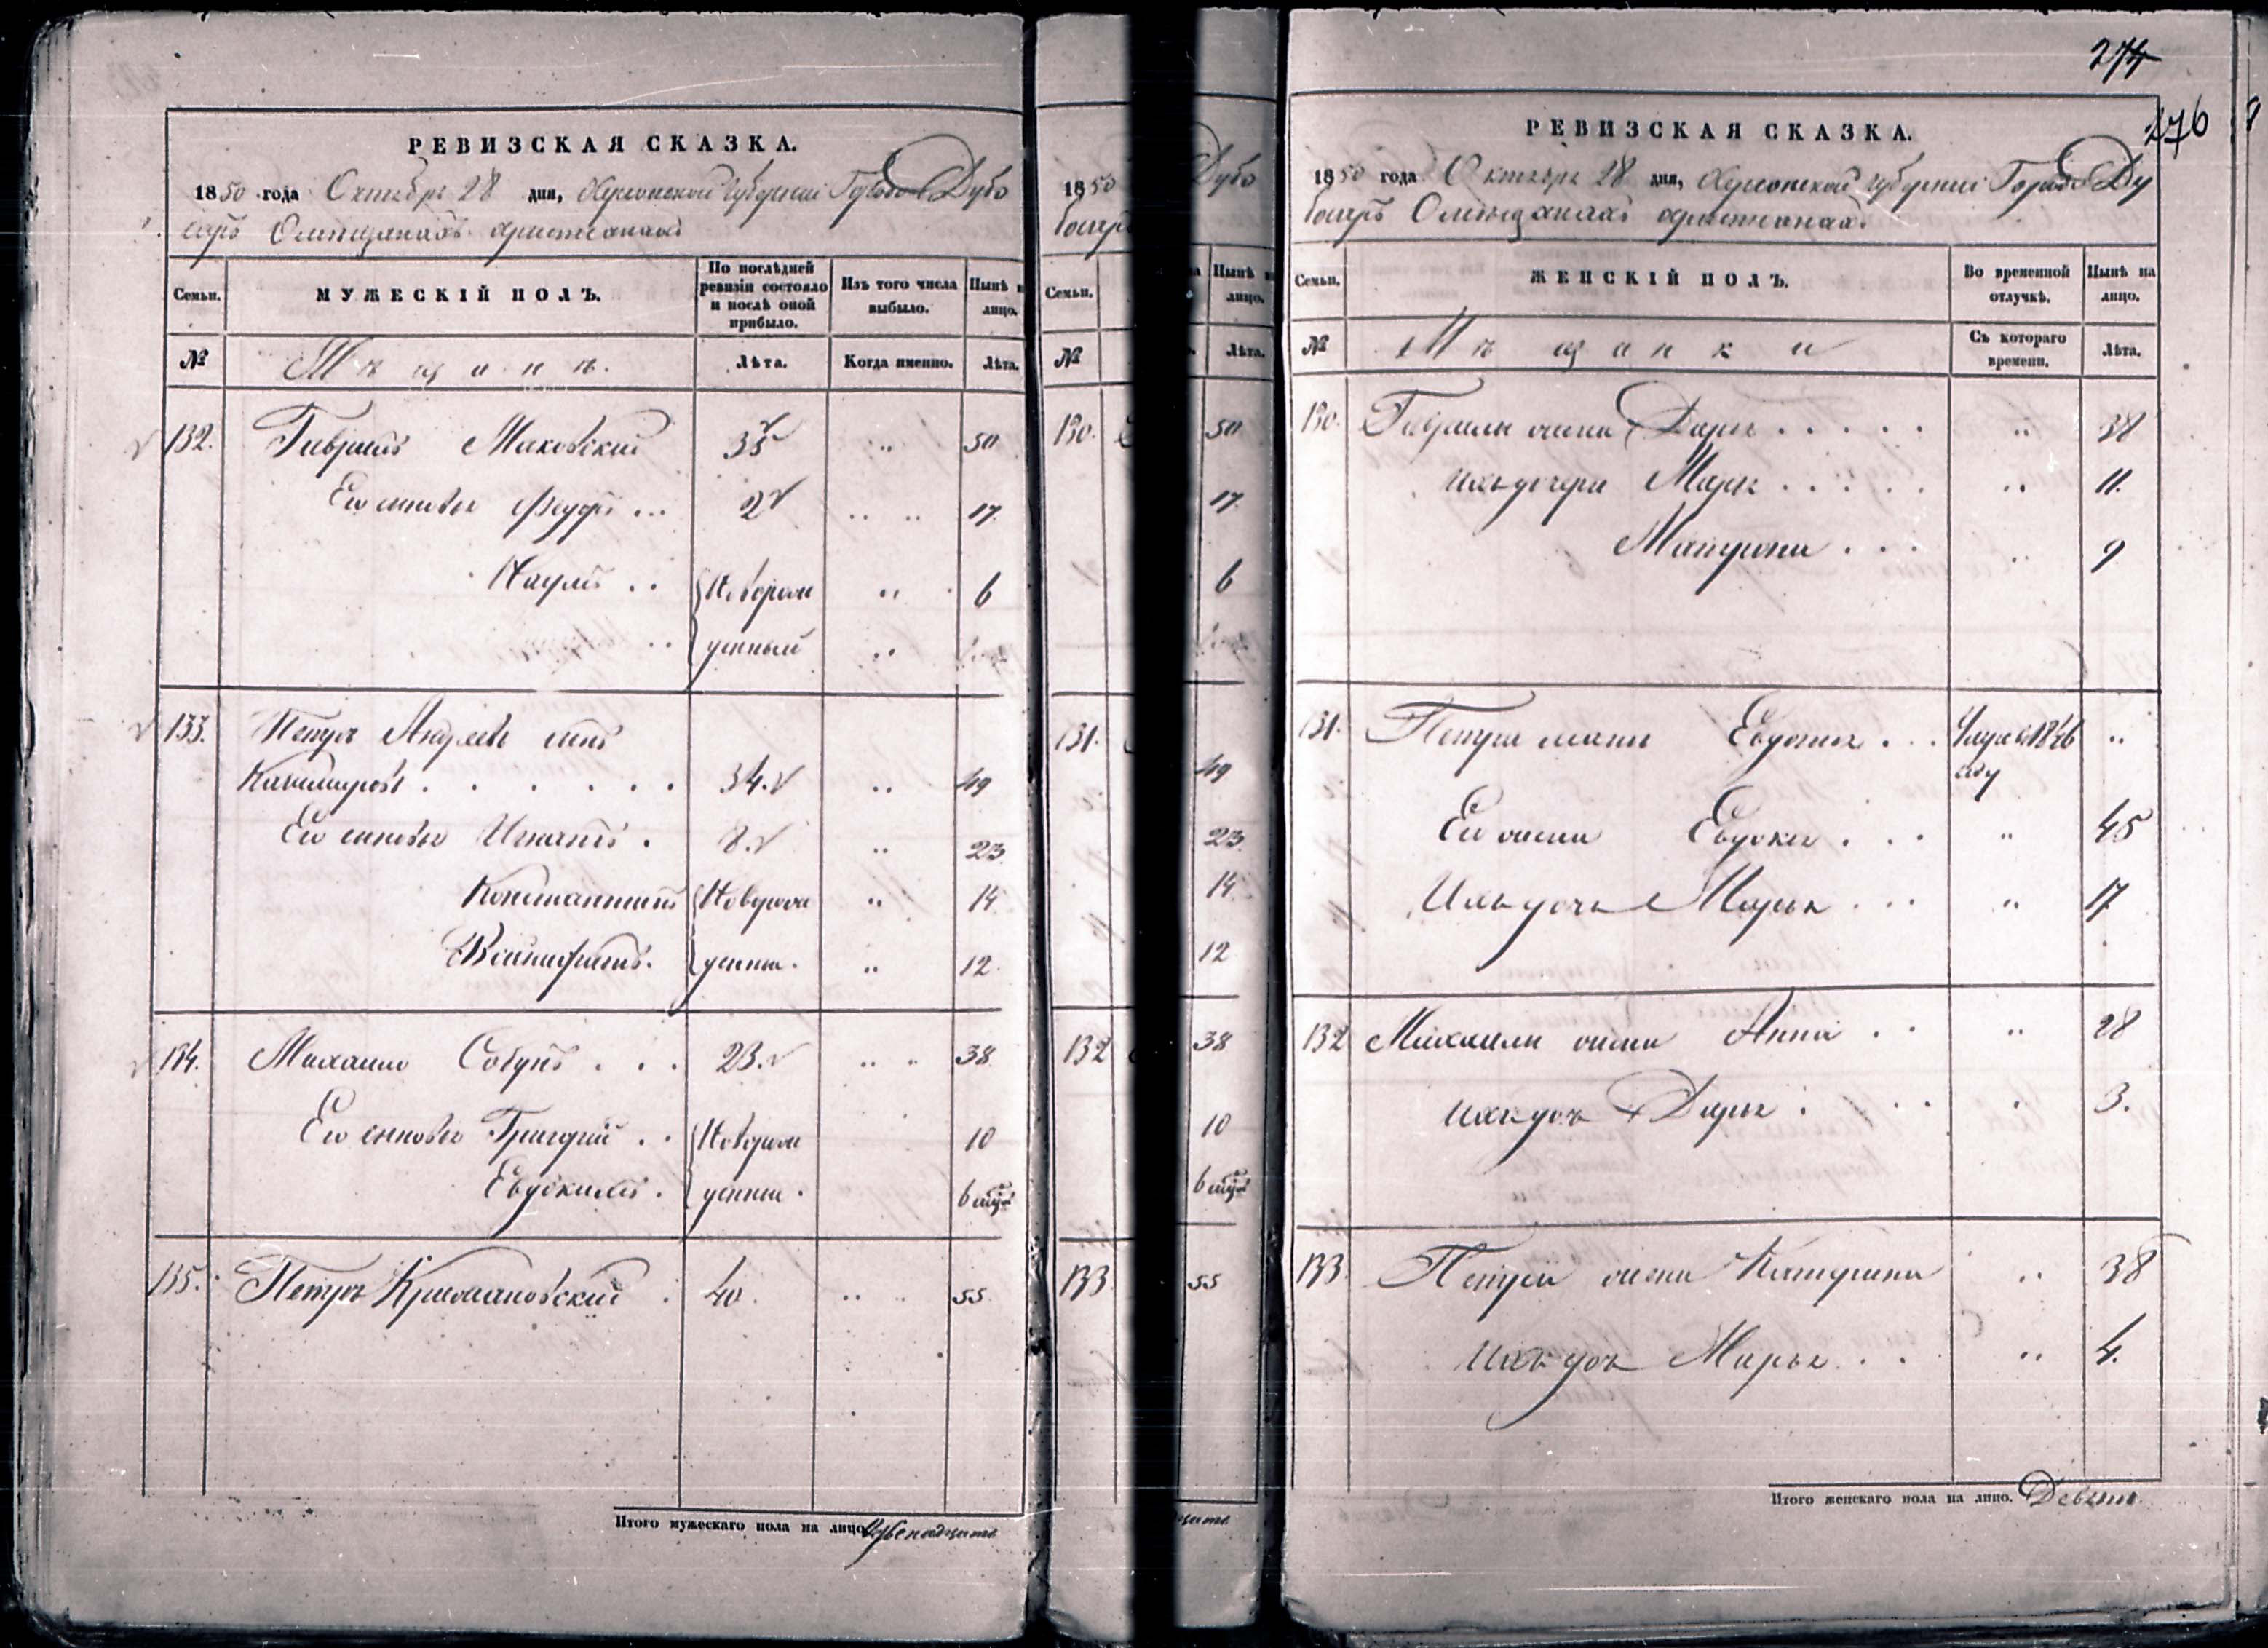 РЕВИЗСКАЯ СКАЗКА.
1850 года Октября 28 дня, Херсонской Губернии Города Дубо
саръ О мещанахъ христианахъ
Семьи. МУЖЕСКІЙ ПОЛЪ. По послѣдней ревизіи состояло и послѣ оной прибыло. Изъ того числа выбыло. Нынѣ н лицо.
№ Мѣщане. Лѣта. Когда именно. Лѣта.
132. Гаврило Маковский 35 „ 50
Его сыновья Федоръ ... 2 „ „ 17.
Наумъ .. Новорож „ 6
денный „
133. Петръ Андреевъ сынъ
Казимировъ . . . . . . 34. „ 49
Его сыновья Игнатъ . 8. „ 23
Константинъ Новорож „ 14
денные. „ 12.
134. Михайло Совунъ . . . 23. „ „ 38
Его сыновья Григорий .. Новорож 10
Евдокимъ . денные . 6
135. Петръ . 40. „ „ 55
Итого мужескаго пола на лицо. Двенадцать
1850
Семьи.
№
130.
131.
132
133
Дубо
Нынѣ н
лицо.
Лѣта.
50
17.
6
49
23
14
12
38
10
6
55
274
276
РЕВИЗСКАЯ СКАЗКА.
1850 года Октября 28 дня, Херсонской Губернии Города Ду
босаръ О мещанахъ христианахъ
Семьи. ЖЕНСКІЙ ПОЛЪ. Во временной отлучкѣ. Нынѣ на лицо.
№ Мѣщанки Съ котораго времени. Лѣта.
130. Гаврилы жена Дарья . . . . . „ 38
ихъ дочери Марья . . . . . „ 11.
Матрона . . . „ 9
131. Петра мать . . . 1846 „
году
Его жена Евдокия . . . „ 45
Ихъ дочь Марья . . . „ 17
132 Михайлы жена Анна . . „ 28
ихъ дочь Дарья . . . „ 3.
133. Петра жена Катерина „ 38
ихъ дочь Марья . . . „ 4.
Итого женскаго пола на лицо. Девять